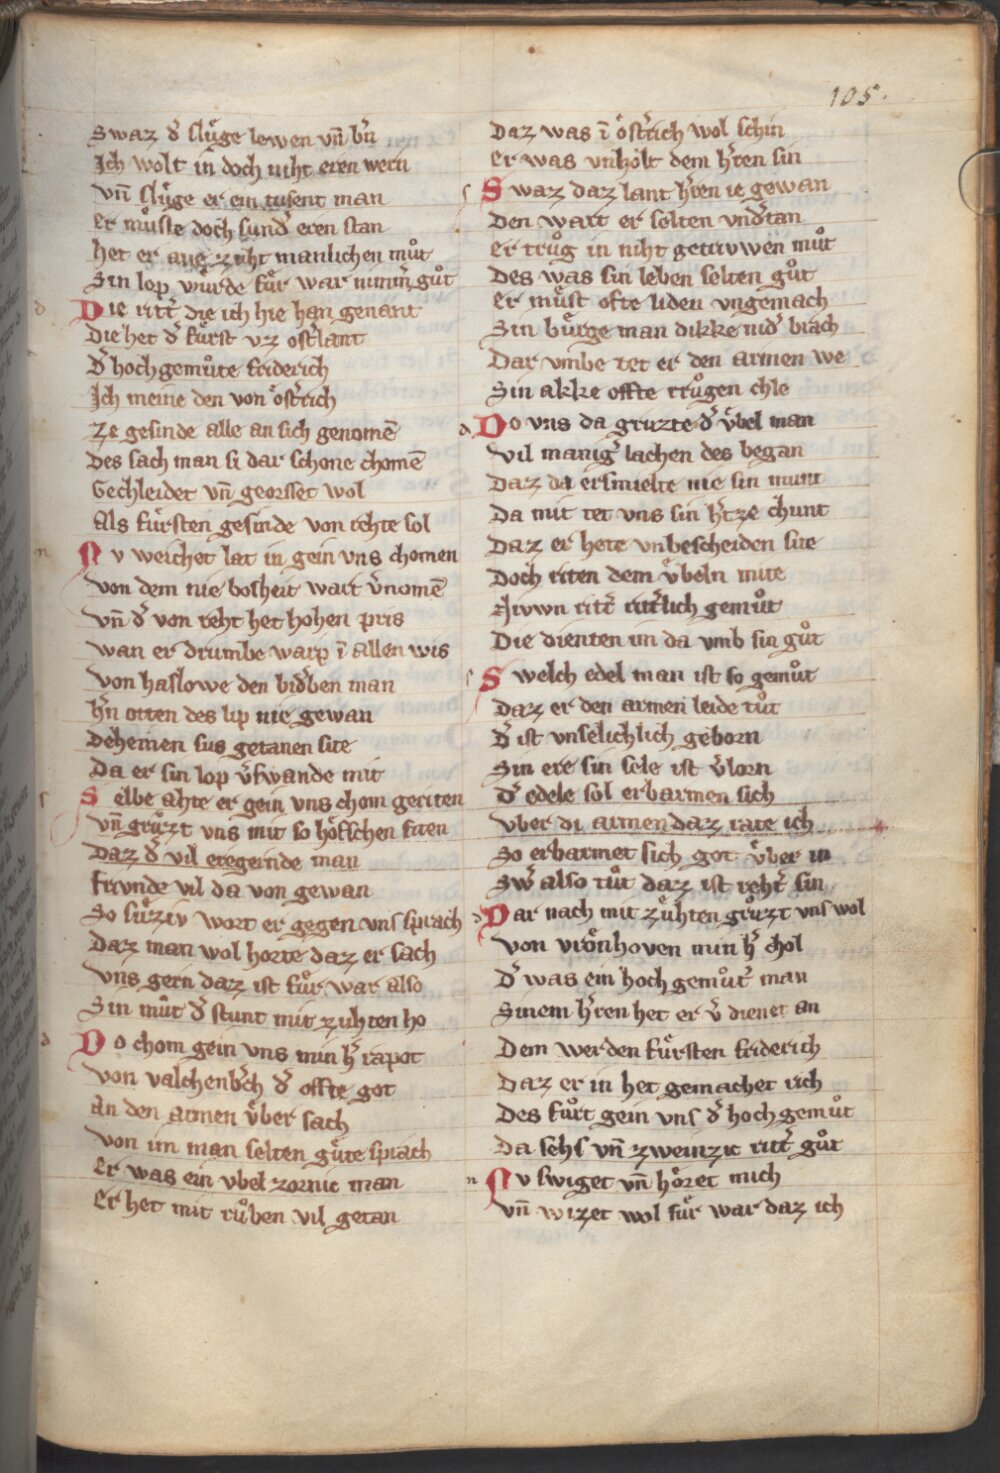 105.
Swaz d̕ slůge lewen vn̄ b̕n
Ich wolt in doch niht eren wern
vn̄ slůge er ein tusent man
er můste doch sund̕ eren stan
het er niht manlichen můt
Sin lop wurde fůr war nimm̕ gůt
Die ritt̕ die ich hie han genant
Die het d̕ fůrst vz ost̕lant
d̕ hochgemůte friderich
Ich meine den von ost̕rich
ze gesinde alle an sich genomē
Des sach man si dar schone chomē
Gechleidet vn̄ georsset wol
als fůrsten gesinde von rehte sol
Nv weichet lat in gein vns chomen
von dem nie bosheit wart v̕nomē
vn̄ d̕ von reht het hohen pris
wan er drumbe warp ī allen wis
von haslowe den bid̕ben man
h̕n otten des lip nie gewan
deheinen sus getanen site
Da er sin lop v̕swande mit
Selbe ahte er gein vns chom geriten
vn̄ grůzt vns mit so hőfschen siten
daz d̕ vil eregernde man
frvnde vil da von gewan
So sůziv wort er gegen vns sprach
Daz man wol horte daz er sach
vns gern daz ist fůr war also
Sin můt d̕ stunt mit zuhten ho
Do chom gein vns min h̕ rapot
von valchenb̕ch d̕ offte got
an den armen ůber sach
von im man selten gůte sprach
er was ein vbel zornic man
er het mit růben vil getan
Daz was ī ost̕rich wol schin
er was vnholt dem h̕ren sin
Swaz daz lant h̕ren ie gewan
Den wart er selten vnd̕tan
er trůg in niht getrvwen můt
des was sin leben selten gůt
er můst ofte liden vngemach
Sin bůrge man dikke nid̕ brach
Dar vmbe tet er den armen we
Sin akke offte trůgen chle
Do vns da gruzte d̕ ůbel man
vil manig̕ lachen des began
Daz da ersmielte nie sin munt
Da mit tet vns sin h̕tze chunt
Daz er hete vnbescheiden site
Doch riten dem ůbeln mite
zwwn ritt̕ ritt̕lich gemůt
Die dienten im da vmb sin gůt
Swelch edel man ist so gemůt
Daz er den armen leide tůt
d̕ ist vnselichlich geborn
Sin ere sin sele ist v̕lorn
d̕ edele sol erbarmen sich
vber di armen daz rate ich
So erbarmet sich got ůber in
Sw̕ also tůt daz ist reht̕ sin
Dar nach mit zůhten grůzt vns wol
von vrőnhoven min h̕ chol
d̕ was ein hoch gemůt̕ man
Sinem h̕ren het er v̕dienet an
Dem werden fůrsten friderich
Daz er in het gemachet rich
Des fůrt gein vns d̕ hochgemůt
da sehs vn̄ zweinzic ritt̕ gůt
Nv swiget vn̄ hőret mich
vn̄ wizet wol fůr war daz ich